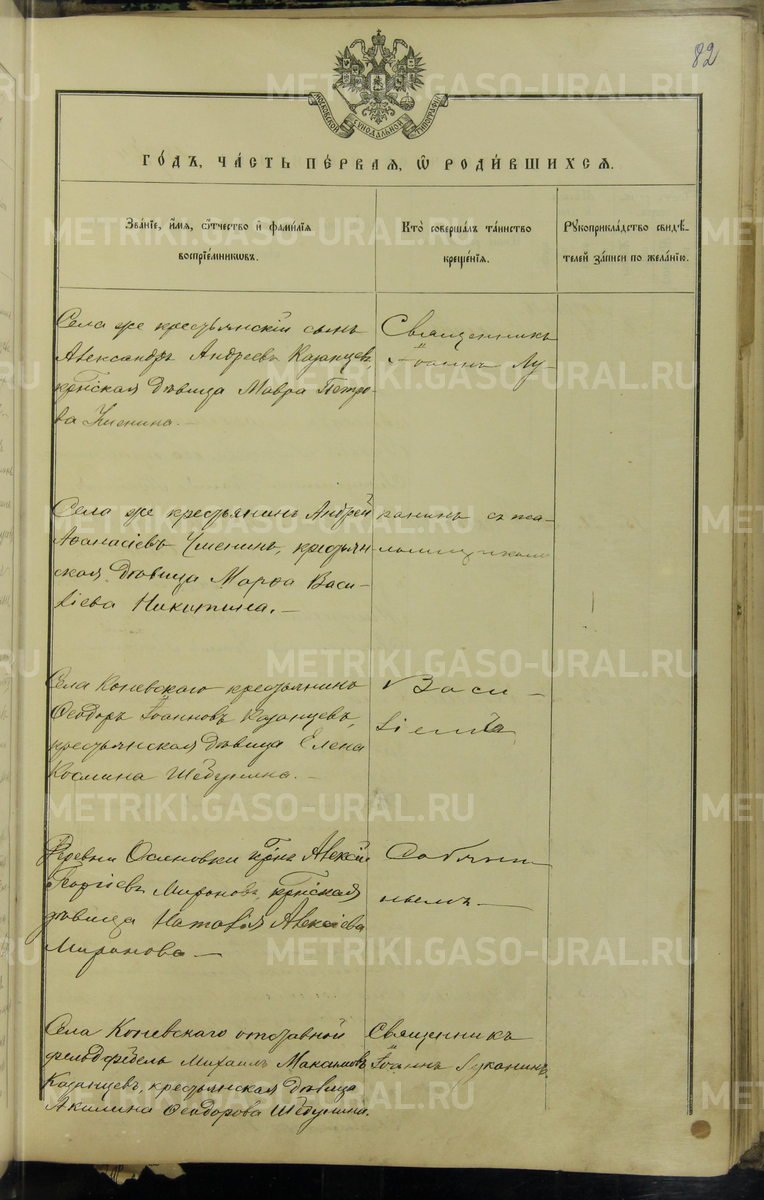 82
МОСКОВСКОЙ СѴНОДАЛЬНОЙ ТИПОГРАФІИ
ГО́ДЪ, ЧА́СТЬ ПЕ́РВАЯ, Ѽ РОДИ́ВШИХСЯ.
Зва́нїе, и҆́мя, ѻ҆́тчество и҆ фами́лїя
воспрїе́мникѡвъ.
Кто̀ соверша́лъ та́инство
креще́нїя.
Рꙋкоприкла́дство свидѣ́-
телей за́писи по жела́нїю.
Села же крестьянскій сынъ
Александръ Андреевъ Казанцевъ,
кр̃нская дѣвица Мавра Петро-
ва
Священникъ
Іоаннъ Лу-
Села же крестьянинъ Андрей
Аѳанасіевъ, крестьян-
ская дѣвица Марѳа Васи-
ліева Никитина. —
канинъ съ пса-
ломщикомъ
Села Коневскаго крестьянинъ
Ѳеодоръ Іоанновъ Казанцевъ,
крестьянская дѣвица Елена
Космина Шебунина. —
Васи —
ліемъ
Деревни Осиновки кр̃нъ Алексій
Георгіевъ Мироновъ, кр̃нская
дѣвица Наталія Алексіева
Миронова —
Собян
нымъ —
Села Коневскаго отставной
фельдфебель Михаилъ Максимовъ
Казанцевъ, крестьянская дѣвица
Акилина Ѳеодорова Шебунина.
Священникъ
Іоаннъ Луканинъ.
METRIKI.GASO-URAL.RU